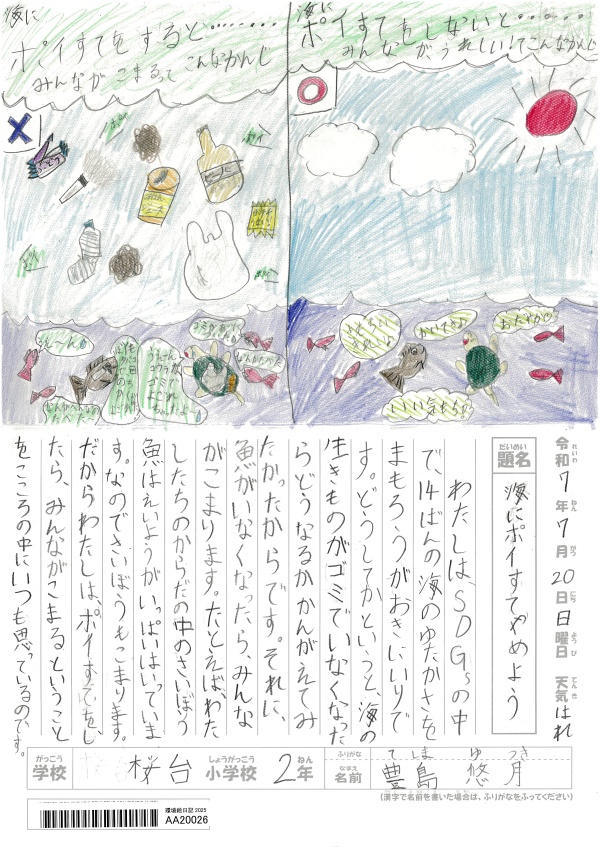 海に
ポイすてをすると……
みんながこまるってこんなかんじ
海に
ポイすてをしないと……
みんながうれしい!てこんなかんじ
かいてきだよ
いい気もち
令和7年7月20日日曜日 天気はれ
れいわ ねん がつ にち ようび てんき
だいめい
題名
海にポイすてやめよう
わたしは、SDGsの中
で、14ばんの海のゆたかさを
まもろうがおきにいりで
す。どうしてかというと、海の
生きものがゴミでいなくなった
らどうなるかかんがえてみ
たかったからです。それに、
魚がいなくなったら、みんな
がこまります。たとえば、わた
したちのからだの中のさいぼう
魚はえいようがいっぱいはいっていま
す。なのでさいぼうもこまります。
だからわたしは、ポイすてをし
たら、みんながこまるということ
をこころの中にいつも思っているのです。
がっこう
学校
桜台
しょうがっこう
小学校
2年
ねん
ふりがな
てしま ゆづき
なまえ
名前
豊島 悠月
(漢字で名前を書いた場合は、ふりがなをふってください)
環境絵日記 2025
AA20026